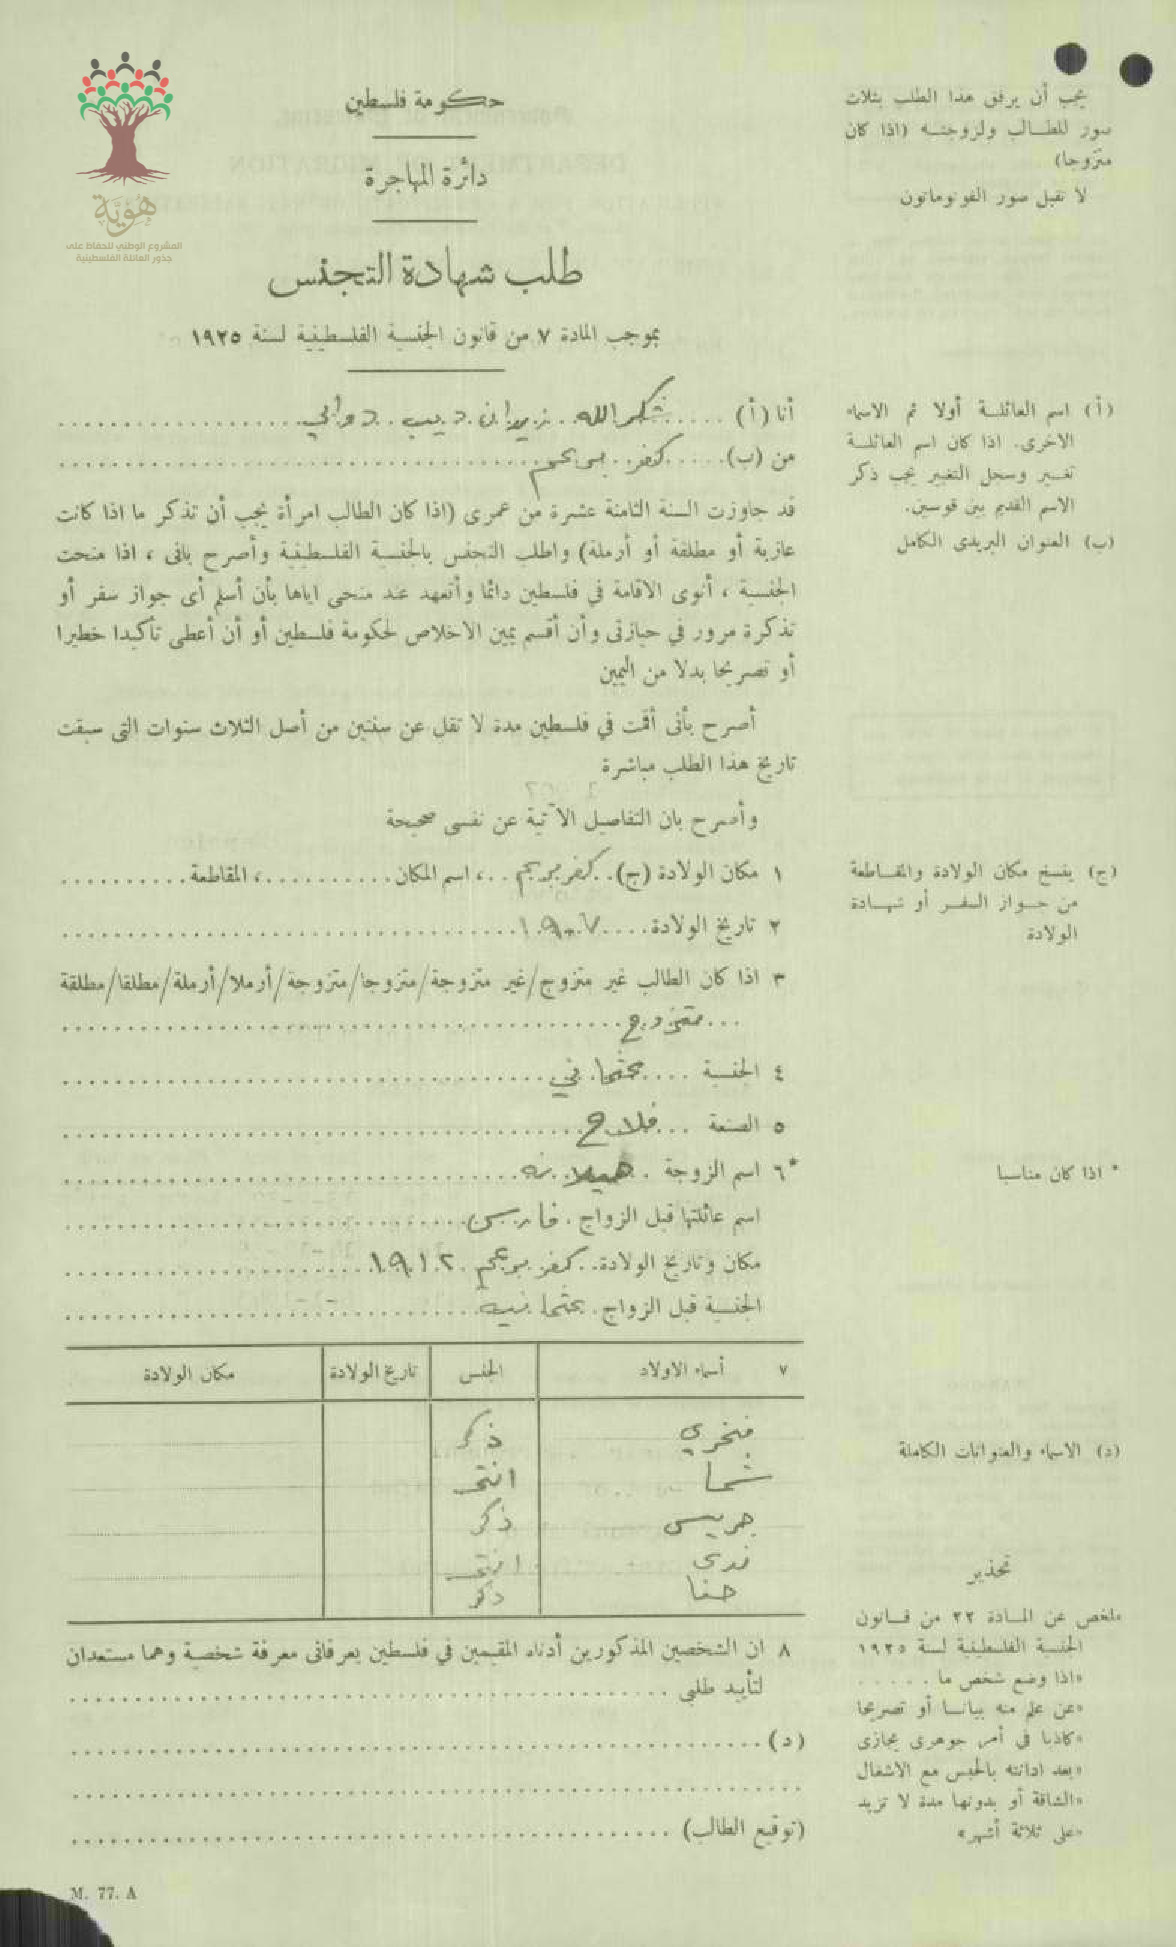 هوية
المشروع الوطني للحفاظ على
جذور العائلة الفلسطينية
حكومة فلسطين
دائرة المهاجرة
طلب شهادة التجنس
بموجب المادة ٧ من قانون الجنسية الفلسطينية لسنة ١٩٢٥
يجب أن يرفق هذا الطلب بثلاث
صور للطالب ولزوجته (اذا كان
متزوجا)
لا تقبل صور الفوتوماتون
أنا (أ) شكر الله ديب
من (ب) كفر برعم
قد جاوزت السنة الثامنة عشرة من عمرى (اذا كان الطالب امرأة يجب أن تذكر ما اذا كانت
عازبة أو مطلقة أو أرملة) واطلب التجنس بالجنسية الفلسطينية وأصرح بانى ، اذا منحت
الجنسية ، أنوى الاقامة في فلسطين دائما وأتعهد عند منحى اياها بأن أسلم أى جواز سفر أو
تذكرة مرور في حيازتى وأن أقسم يمين الاخلاص لحكومة فلسطين أو أن أعطى تأكيدا خطيرا
أو تصريحا بدلا من اليمين
أصرح بأنى أقمت في فلسطين مدة لا تقل عن سنتين من أصل الثلاث سنوات التى سبقت
تاريخ هذا الطلب مباشرة
وأصرح بان التفاصيل الآتية عن نفسى صحيحة
١ مكان الولادة (ج) كفر برعم ، اسم المكان ، المقاطعة
٢ تاريخ الولادة ١٩٠٧
٣ اذا كان الطالب غير متزوج/غير متزوجة/متزوجا/متزوجة/أرملا/أرملة/مطلقا/مطلقة
متزوج
٤ الجنسية عثماني
٥ الصنعة فلاح
*٦ اسم الزوجة هيلانه
اسم عائلتها قبل الزواج فارس
مكان وتاريخ الولادة كفر برعم ١٩١٢
الجنسية قبل الزواج عثمانيه
٧ أسماء الاولاد الجنس تاريخ الولادة مكان الولادة
فخري ذكر
شما انثى
جريس ذكر
ندى انثى
حنا ذكر
٨ ان الشخصين المذكورين أدناه المقيمين في فلسطين يعرفانى معرفة شخصية وهما مستعدان
لتأييد طلبى
(د)
(توقيع الطالب)
M. 77. A
(أ) اسم العائلة أولا ثم الاسماء
الاخرى. اذا كان اسم العائلة
تغير وسجل التغيير يجب ذكر
الاسم القديم بين قوسين.
(ب) العنوان البريدى الكامل
(ج) ينسخ مكان الولادة والمقاطعة
من جواز السفر أو شهادة
الولادة
* اذا كان مناسبا
(د) الاسماء والعنوانات الكاملة
تحذير
ملخص عن المادة ٢٢ من قانون
الجنسية الفلسطينية لسنة ١٩٢٥
«اذا وضع شخص ما
«عن علم منه بيانا أو تصريحا
«كاذبا فى أمر جوهرى يجازى
«بعد ادانته بالحبس مع الاشغال
«الشاقة أو بدونها مدة لا تزيد
«على ثلاثة أشهر»